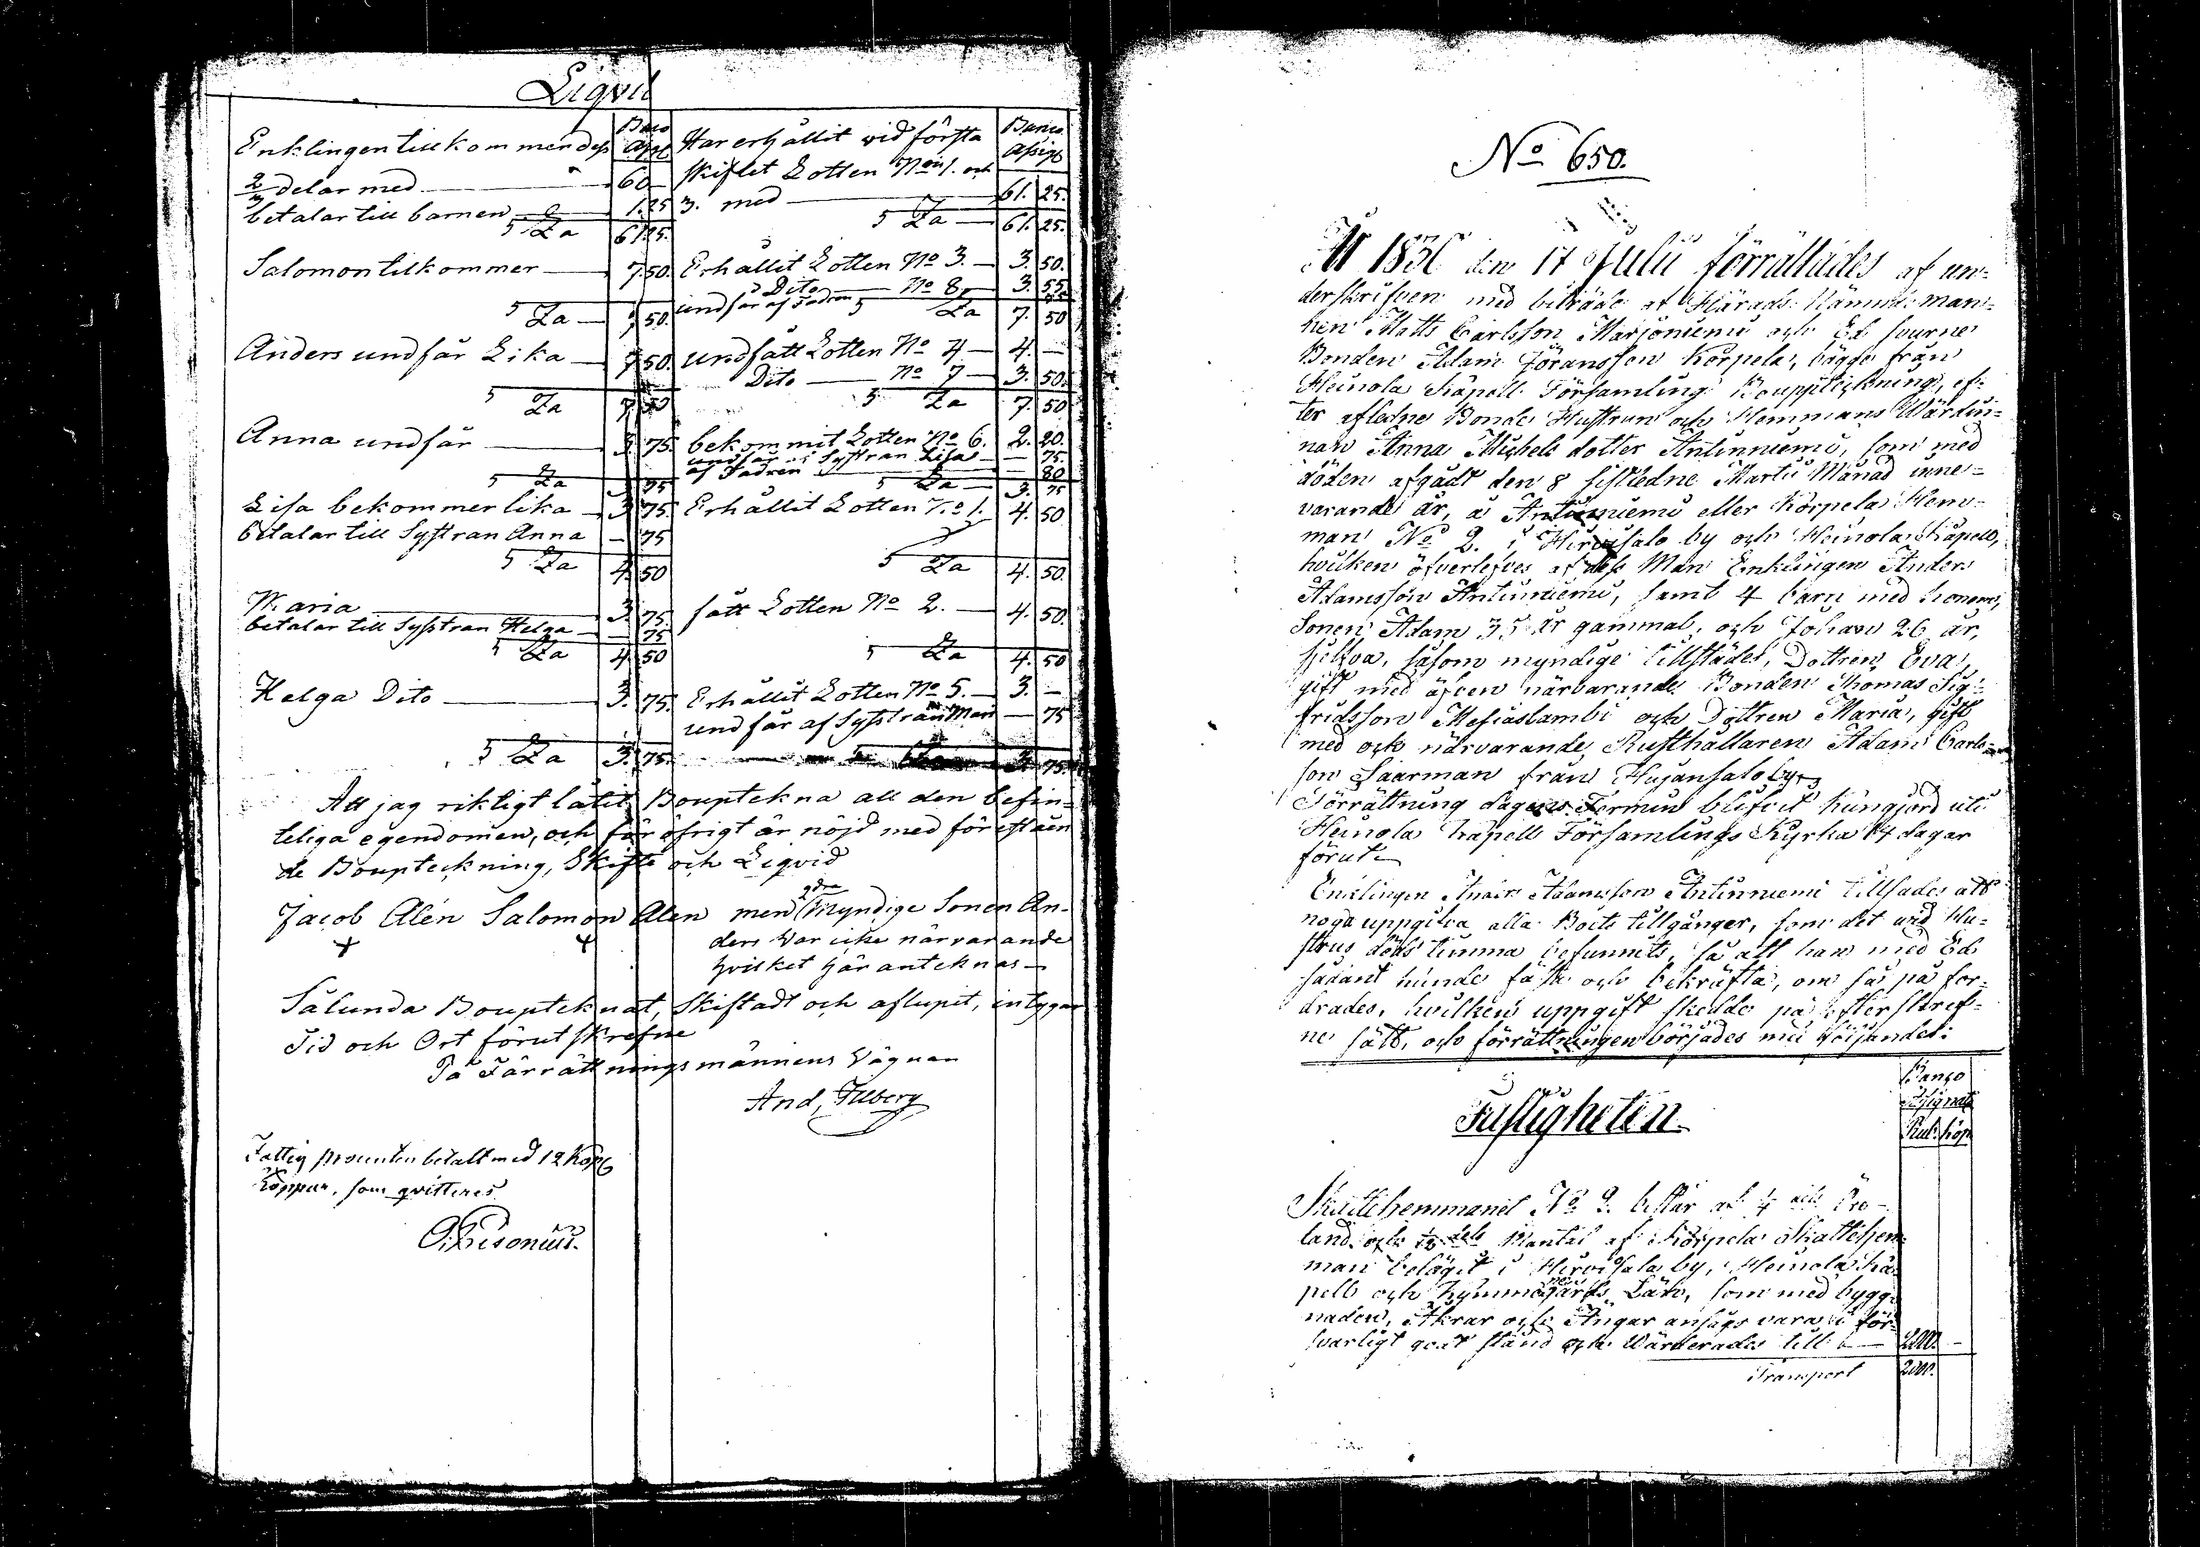 Liqvid
Enklingen tillkommer dess
2/3 delar med 60
betalar till barnen 1.25
S:a 61.25.
Salomon tilkommer 7.50.
S:a 7.50.
Anders undfår Lika 7.50.
S:a 7.50
Anna undfår 3.75.
S:a 3.75
Lisa bekommer lika 3.75.
betalar till Systran Anna 75
S:a 4.50
Maria 3.75.
betalar till Systran Helga 75
S:a 4.50
Helga Dito 3.75.
S:a 3.75.
Banco Assig
Har erhållit vid första
skiftet Lotten No 1. och
3. med 61.25.
S:a 61.25.
Erhållit Lotten No 3. 3.50.
Dito No 8. 3.55.
undfår af Fadren
S:a 7.50
undfått Lotten No 4 4.
Dito No 7 3.50.
S:a 7.50
bekommit Lotten No 6. 2.20.
undfår af Systran Lisa 75.
af Fadren 80
S:a 3.75
Erhållit Lotten No 1. 4.50
S:a 4.50.
fått Lotten No 2. 4.50.
S:a 4.50
Erhållit Lotten No 5. 3.
undfår af Systran Mari 75
3.75.
Att jag riktigt låtit Bouptekna all den befin-
teliga egendomen, och för öfrigt är nöjd med föreståen
de Boupteckning, Skifte och Liqvid
Jacob Alén Salomon Alen men Myndige Sonen An-
ders var icke närvarande
hvilket här anteknas
Sålunda Bouptecknat, Skiftadt och aflupit, intygar
Tid och Ort förut skrefne
På Förrättningsmännens vägnar
And. Illberg
Fattig procenten betalt med 12 Kop
Koppar, som qvitteres

No 650.
År 1836 den 17 Julii förrättades af un-
derskrifven med biträde af Härads Nämndeman-
nen Matts Carlsson Marjoniemi och Ed svurne
Bonden Adam Göransson Korpela, bägge från
Heinola Kapell Församling Bouppteckning, ef-
ter aflidne Bonde Hustrun och Hemmans Wärdin-
nan Anna Michels dotter Antinniemi, som med
döden afgådt den 8 sistledne Martii Månad inne-
varande år, å Antinniemi eller Korpela Hem-
man No 2. i Hirvisalo by och Heinola Kapell,
hvilken öfverlefves af dess Man Enklingen Anders
Adamsson Antinniemi, samt 4 barn med honom,
Sonen Adam 35 år gammal, och Johan 26 år,
sjelfva, såsom myndige tillstädes, Dottren Eva,
gift med äfven närvarande Bonden Thomas Sig-
fridsson och Dottren Maria, gift
med och närvarande Rusthållaren Adam Carls-
son Saarman från by
Förrättning dagens Termin blifvit kungjord uti
Heinola Kapell Församlings Kyrka 14 dagar
förut
Enklingen Anders Adamsson Antinniemi tillsades att
noga uppgifva alla Boets tillgånger, som det wid Hu-
struns döds timma befunnits, så att han med Ed
sådant kunde fästa och bekräfta, om så på for-
drades, hvilken uppgift skedde på efterskref-
ne sätt, och förrättningen börjades med följande:
Banco
Assignat
Rub. Kop
Fastigheten
Skattehemmanet No 2. består af 1/4 dels Öre
land och dels Mantal af Korpela Skattehem-
man beläget i Hirvisalo by, Heinola Ka-
pell och Kymmenegårds Län, som med bygg-
naden, Åkrar och Ängar ansågs vara i för-
svarligt godt stånd och Wärderades till 2000.
Transport 2000.